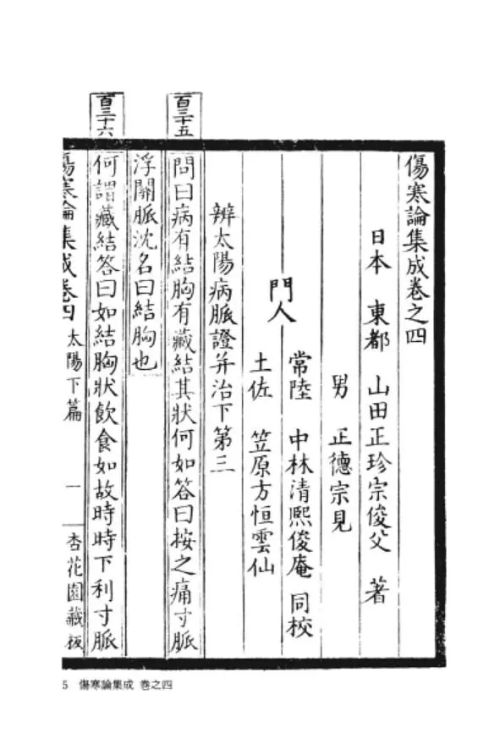 傷寒論集成卷之四
日本 東都 山田正珍宗俊父 著
男 正德宗見
門人
常陸 中林清熙俊庵 同校
土佐 笠原方恒雲仙
辨太陽病脈證并治下第三
百三十五
問曰病有結胸有藏結其狀何如答曰按之痛寸脈
浮關脈沈名曰結胸也
百三十六
何謂藏結答曰如結胸狀飲食如故時時下利寸脈
傷寒論集成卷四 太陽下篇 一 杏花園藏板
5 傷寒論集成 卷之四